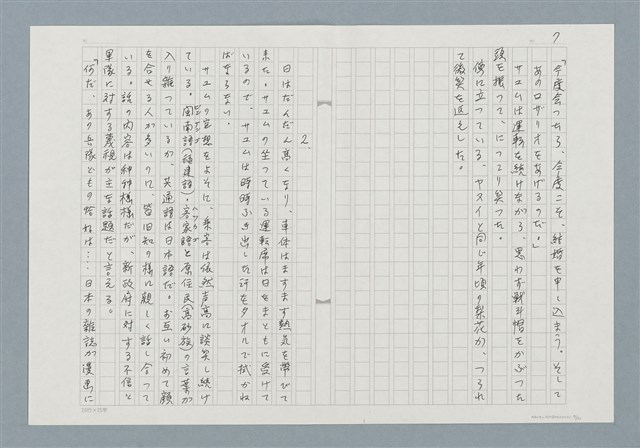 7
「今度会つたら、今度こそ、結婚を申し込まう。そして
あのロザリオをあげるのだ。」
サユムは運転を続けながら、思わず戦斗帽をかぶつた
頭を振つて、につこり笑つた。
側に立つている、ヤスイと同じ年頃の梨花が、つられ
て微笑を返えした。
2.
日はだんだん高くなり、車体はますます熱気を帯びて
来た。サユムの坐つている運転席は日をまともに受けて
いるので、サユムは時時ふき出した汗をタオルで拭かね
ばならない。
サユムの空想をよそに、乗客は依然声高に談笑し続け
ている。閩南語(福建語)・客家語と原住民(高砂族)の言葉が
入り雑つているが、共通語は日本語だ。お互い初めて顔
を合せる人が多いのに、皆旧知の様に親しく話し合つて
いる。話の内容は種種様様だが、新政府に対する不信と
軍隊に対する蔑視が主な話題だと言える。
「何だ、あの兵隊どもの恰好は…日本の雑誌が漫画に